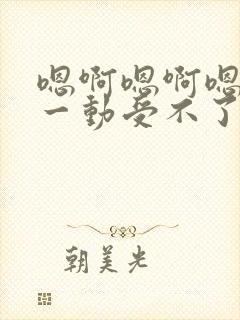 嗯啊嗯啊嗯
一動受不了
朝美光